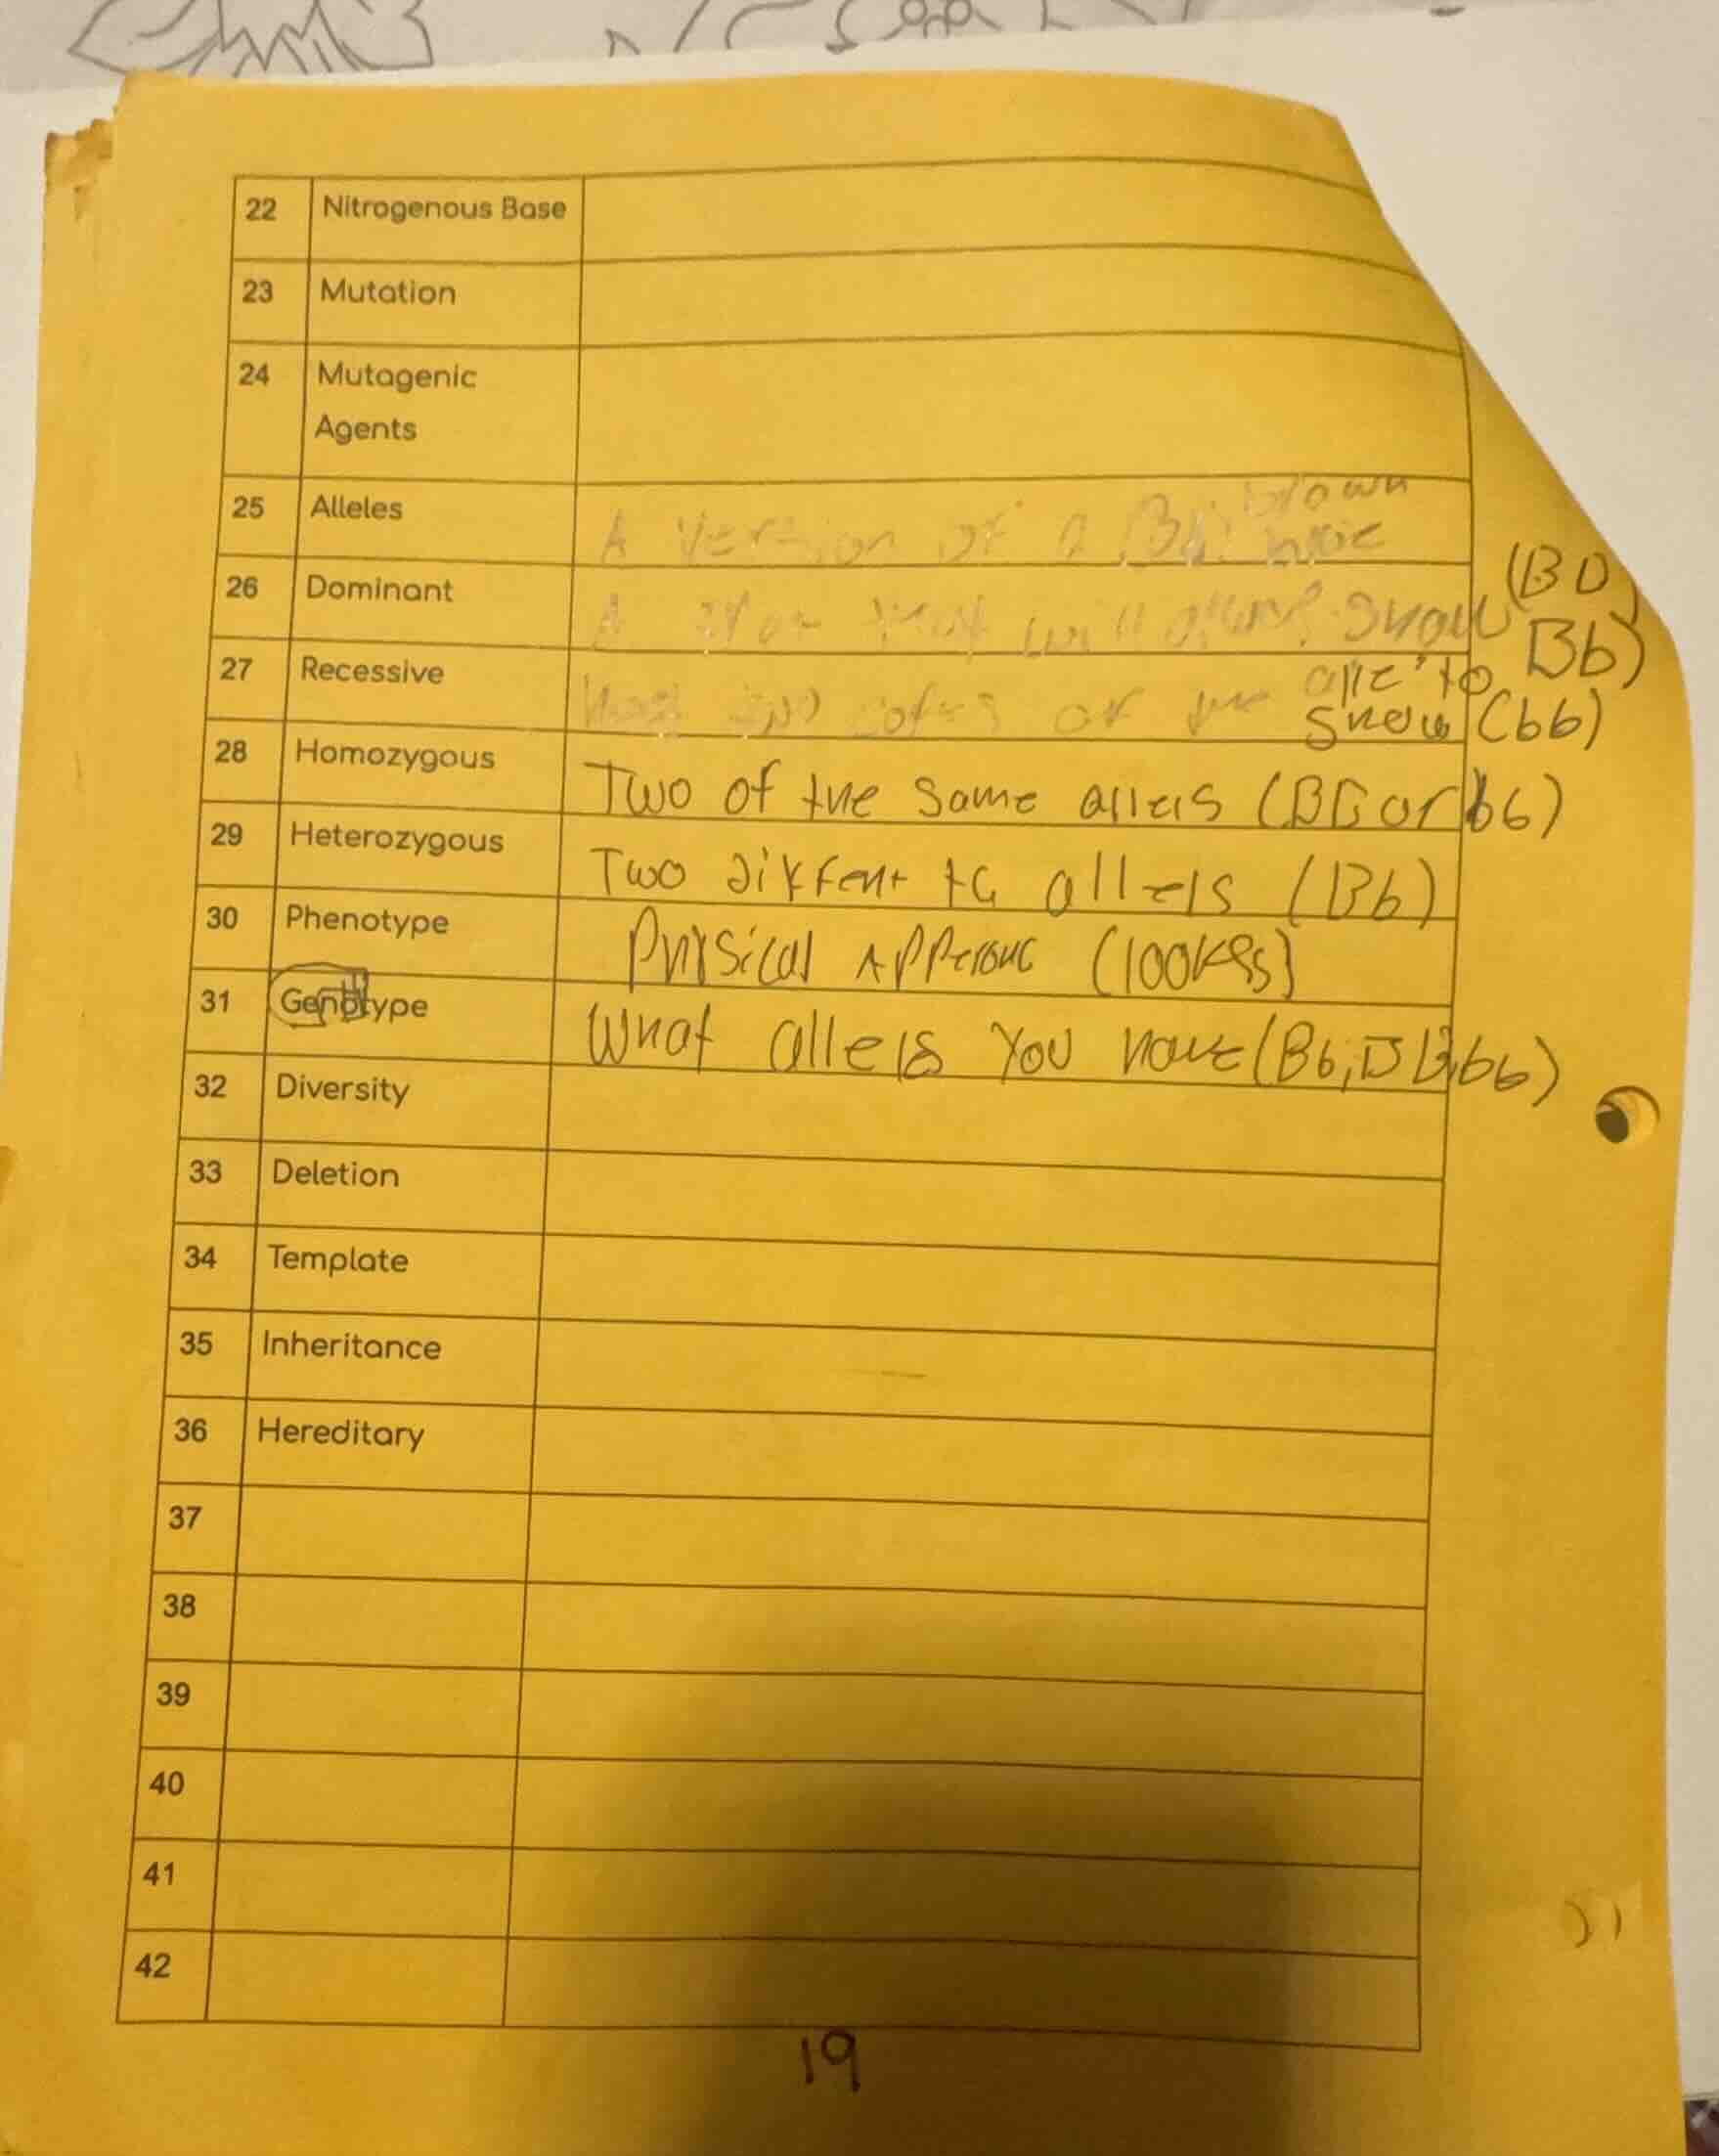 22 Nitrogenous Base
23 Mutation
24 Mutagenic
Agents
25 Alleles A version of a brown
26 Dominant A that will show (BD
Bb)
27 Recessive two of the to
show (bb)
28 Homozygous Two of the same allels (BB or bb)
29 Heterozygous Two allels (Bb)
30 Phenotype Physical (looks)
31 Genotype What allels you have (Bb, BB, bb)
32 Diversity
33 Deletion
34 Template
35 Inheritance
36 Hereditary
37
38
39
40
41
42
19